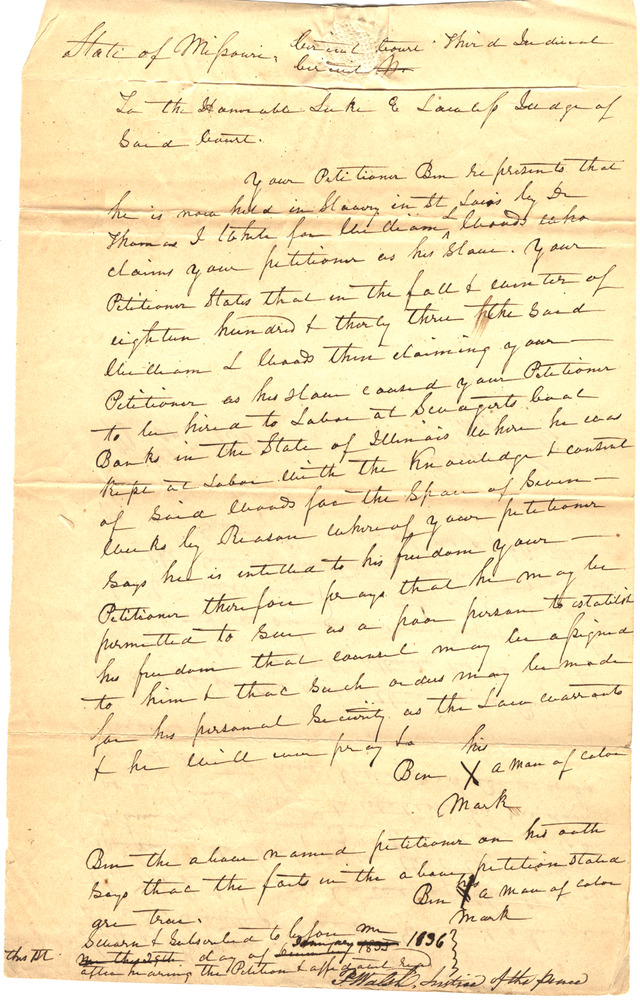 State of Missouri, Circuit Court Third Judicial
Circuit
To the Honorable Luke E Lawless Judge of
Said Court.
Your Petitioner Ben represents that
he is now held in Slavery in St Louis by Dr
Thomas J White for William L Woods who
claims your petitioner as his Slave. Your
Petitioner States that in the fall & winter of
eighteen hundred & thirty three the Said
William L Woods then claiming your
Petitioner as his slave caused your Petitioner
to be hired to Labor at Swagerts boat
Banks in the State of Illinois where he was
Kept at Labor with the Knowledge & consent
of Said Woods for the Space of Seven
Weeks by Reason whereof your petitioner
Says he is intitled to his freedom your
Petitioner therefore prays that he may be
permitted to Sue as a poor person to establish
his freedom that counsel may be assigned
to him & that Such orders may be made
for his personal Security as the Law warrants
& he will ever pray &c
his
Ben X a man of color
Mark
Ben the above named petitioner on his oath
Says that the facts in the above petition stated
are true.
his
Ben X a man of color
Mark
Sworn & Subscribed to before me
this 28th day of January 1836
after hearing the Petition & affidavit read
P Walsh Justice of the peace